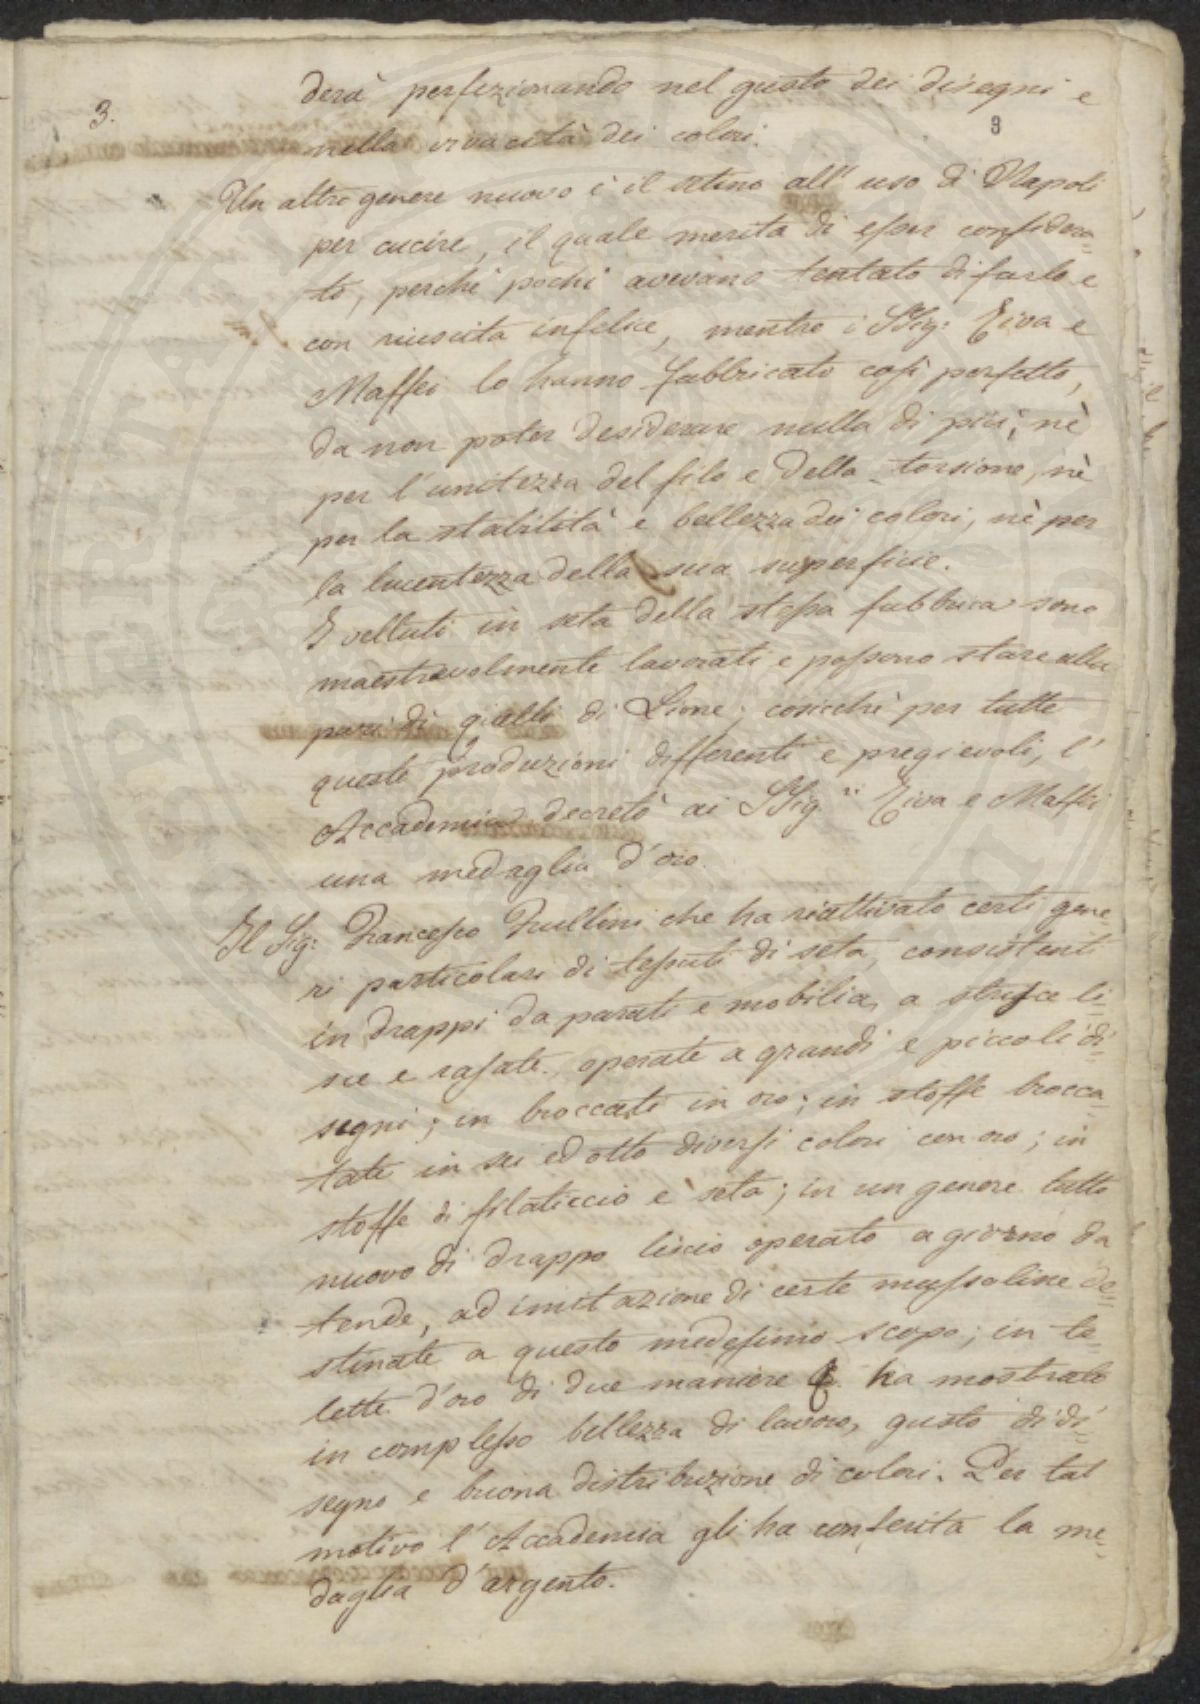 3.
derà perfezionando nel gusto dei disegni e
9
nella vivacità dei colori.
Un altro genere nuovo è il retino all' uso di Napoli
per cucire, il quale merita di esser considera=
to, perchè pochi avevano tentato di farlo e
con riuscita infelice, mentre i SSig: Eiva e
Maffei lo hanno fabbricato così perfetto,
da non poter desiderare nulla di più; nè
per l'unitezza del filo e della torsione, nè
per la stabilità e bellezza dei colori, nè per
la lucentezza della sua superficie.
I velluti in seta della stessa fabbrica sono
maestrevolmente lavorati e possono stare alla
pari di quelli di Lione; cosicchè per tutte
queste produzioni differenti e pregievoli, l'
Accademia decretò ai SSig.ri Eiva e Maffei
una medaglia d'oro.
Il Sig: Francesco Frullini che ha riattivato certi gene=
ri particolari di tessuti di seta, consistenti
in drappi da parati e mobilia, a strisce li=
sce e rasate, operate a grandi e piccoli di=
segni; in broccati in oro; in stoffe brocca=
tate in sei ed otto diversi colori con oro; in
stoffe di filaticcio e seta; in un genere tutto
nuovo di drappo liscio operato a giorno da
tende, ad imitazione di certe mussoline de=
stinate a questo medesimo scopo; in te=
lette d'oro di due maniere ha mostrato
in complesso bellezza di lavoro, gusto di di=
segno e buona distribuzione di colori. Per tal
motivo l'Accademia gli ha conferita la me=
daglia d'argento.